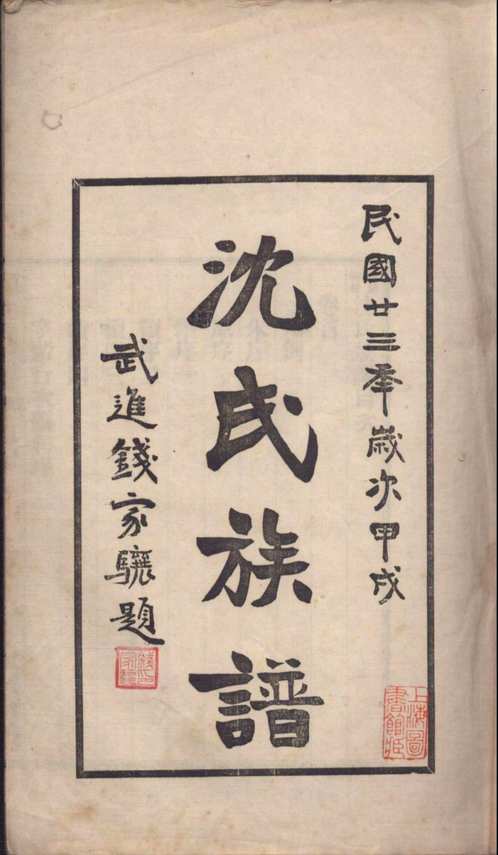 民國廿三年歲次甲戌
沈氏族譜
武進錢家驤題
上海圖
書館藏